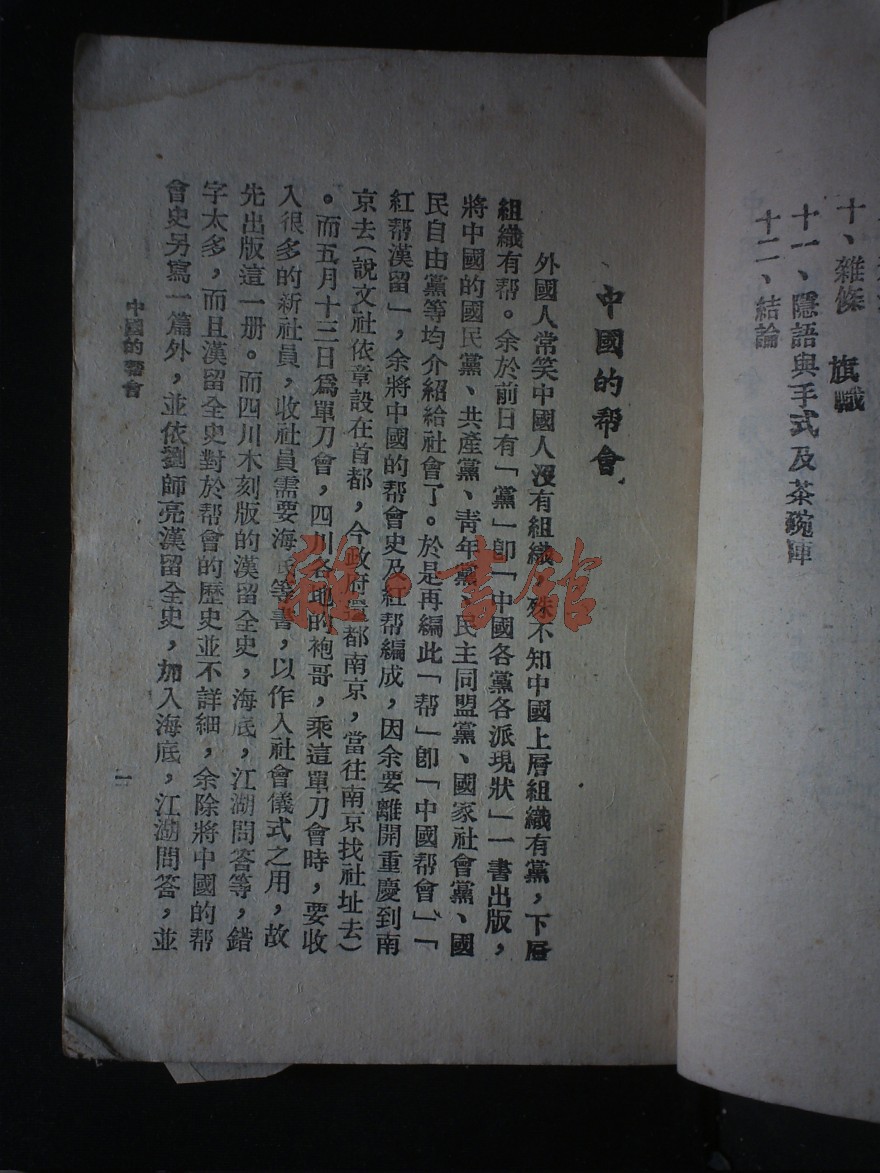 十、雜條　旗幟
十一、隱語與手式及茶碗陣
十二、結論
中國的帮會
外國人常笑中國人沒有組織，殊不知中國上層組織有黨，下層
組織有帮。余於前日有「黨」卽「中國各黨各派現狀」一書出版，
將中國的國民黨、共產黨、靑年黨、民主同盟黨、國家社會黨、國
民自由黨等均介紹給社會了。於是再編此「帮」卽「中國帮會」、「
紅帮漢留」，余將中國的帮會史及紅帮編成，因余要離開重慶到南
京去（說文社依章設在首都，今政府還都南京，當往南京找社址去）
。而五月十三日爲單刀會，四川各地的袍哥，乘這單刀會時，要收
入很多的新社員，收社員需要海底等書，以作入社會儀式之用，故
先出版這一册。而四川木刻版的漢留全史，海底，江湖問答等，錯
字太多，而且漢留全史對於帮會的歷史並不詳細，余除將中國的帮
會史另寫一篇外，並依劉師亮漢留全史，加入海底，江湖問答，並
中國的帮會
一
雜·書館